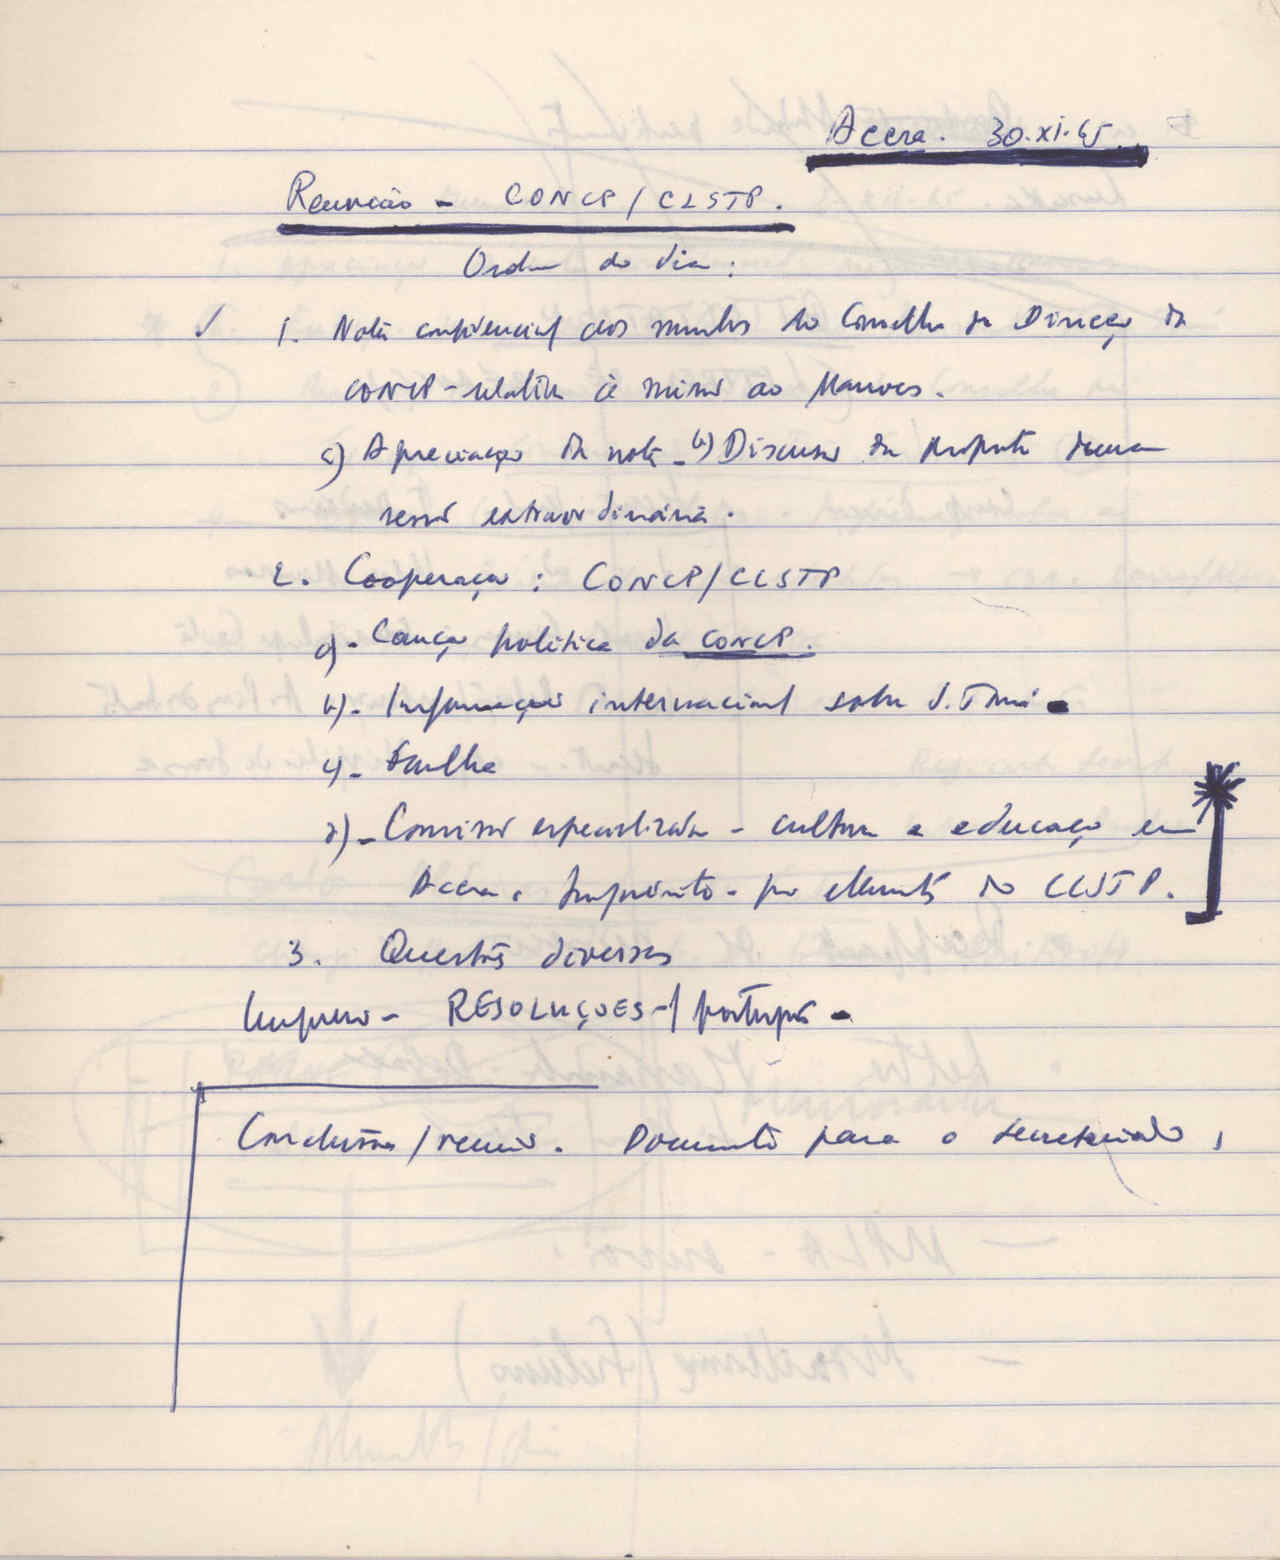 Accra. 30.XI.65
Reunião - CONCP/CLSTP.
Ordem do dia:
1. Nota confidencial dos membros do Conselho de Direcção da
CONCP - relativa à missão ao Marrocos.
a) Apreciação da nota - b) Discussão da proposta duma
sessão extraordinária.
2. Cooperação: CONCP/CLSTP
a) - política da CONCP.
b) - Informação internacional sobre S. Tomé -
c) -
d) - Comissão especializada - cultura e educação em
Accra. - por elementos do CLSTP.
3. Questões diversas
RESOLUÇÕES - / português -
Conclusões/reunião. Documento para o secretariado,